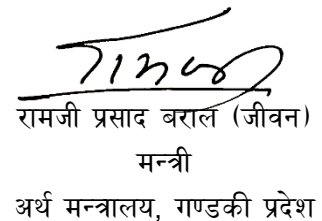 रामजी प्रसाद बराल (जीवन)
मन्त्री
अर्थ मन्त्रालय, गण्डकी प्रदेश